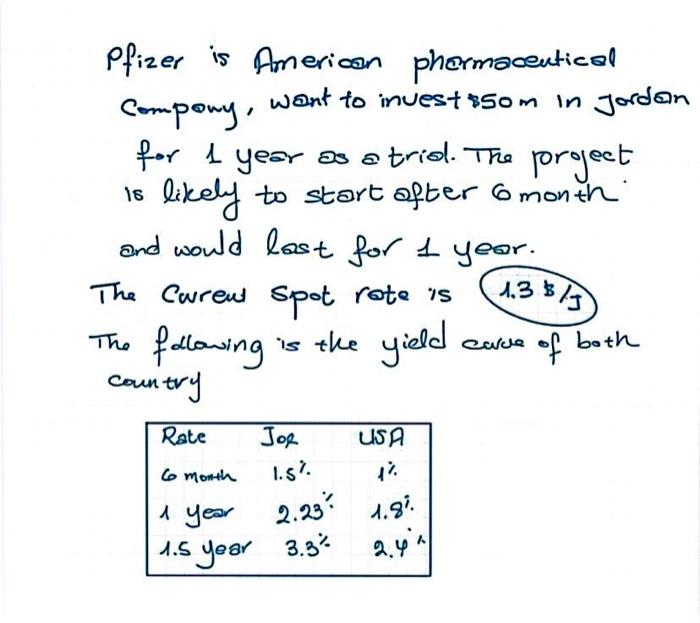 Pfizer is American pharmaceutical
Company, want to invest $50m in Jordan
for 1 year as a trial. The project
is likely to start after 6 month
and would last for 1 year.
The Curent Spot rate is 1.3 $/J
The following is the yield curve of both
country
Rate JOR USA
6 month 1.5% 1%
1 year 2.23% 1.8%
1.5 year 3.3% 2.4%